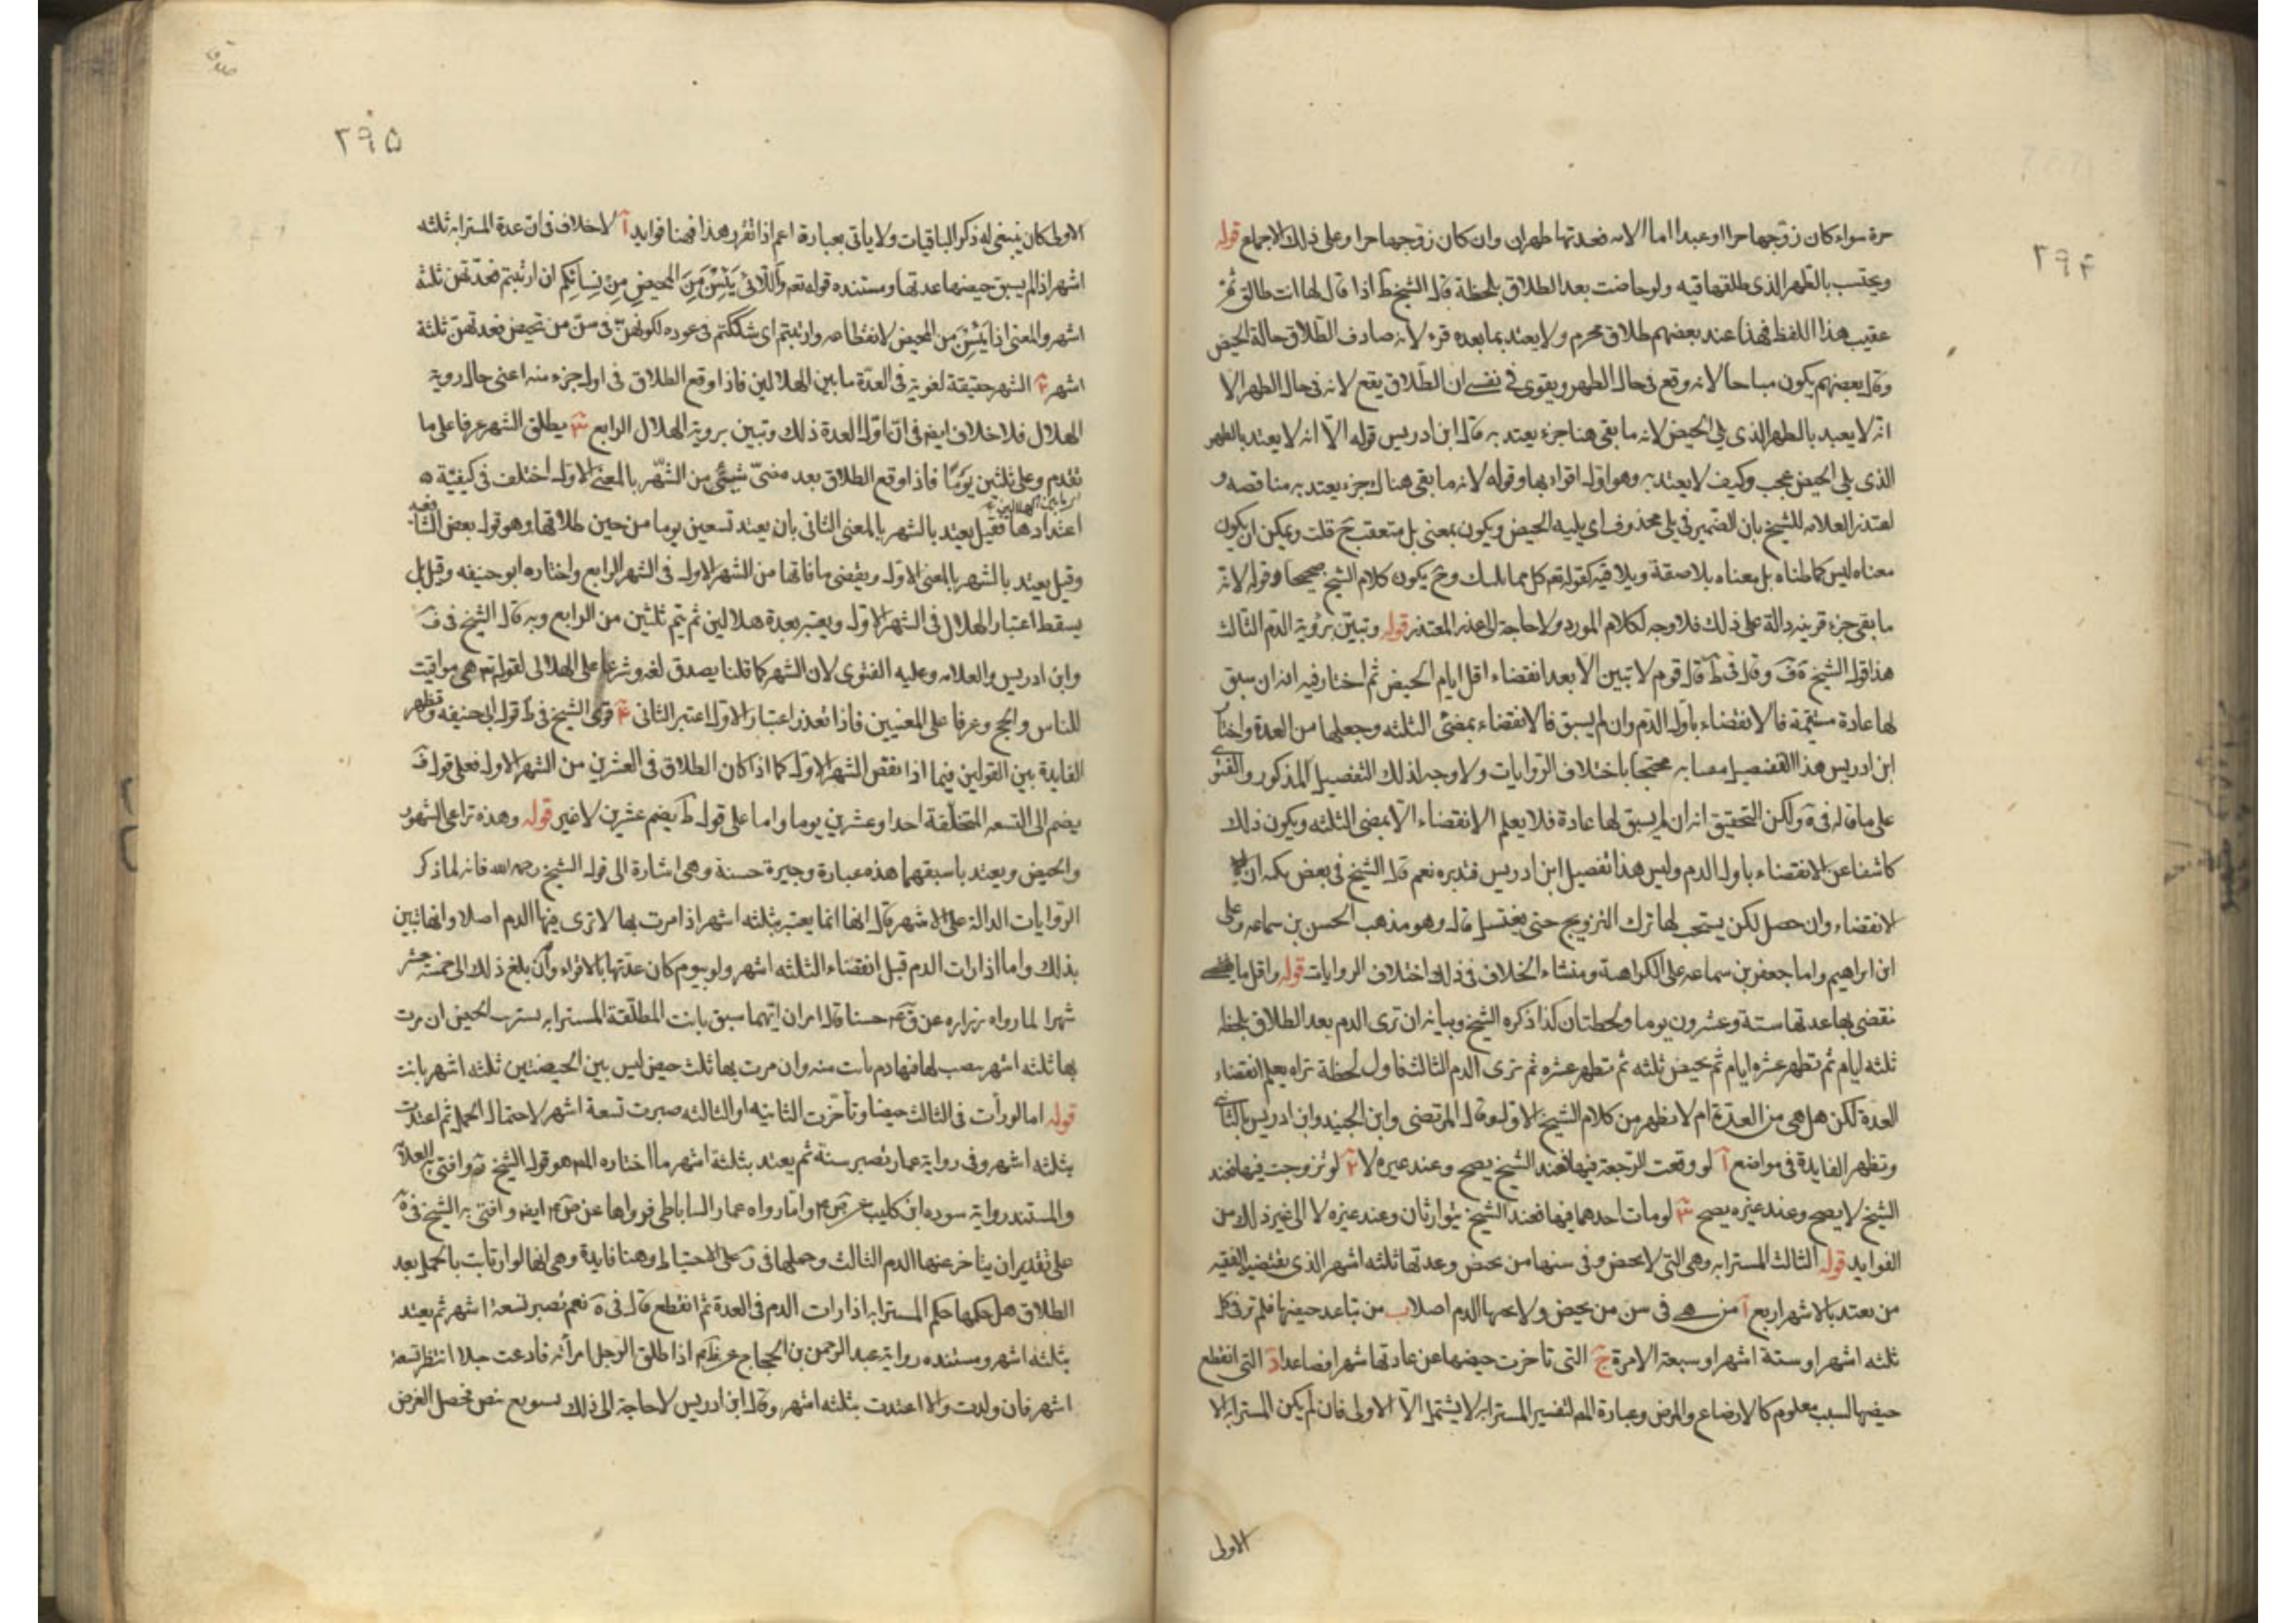 ٢٩۴
حرة سواء كان زوجها حرا او عبدا اما الامه فعدتها طهران وان كان زوجها حرا وعلى ذلك الاجماع قوله
ويحتسب بالطهر الذى طلقها فيه ولو حاضت بعد الطلاق بلحظة قال الشيخ ط اذا قال لها انت طالق ثم
عقيب هذا اللفظ فهذا عند بعضهم طلاق محرم ولا يعتد بما بعده قرء لانه صادف الطلاق حالة الحيض
وقال بعضهم يكون مباحا لانه وقع فى حال الطهر ويقوى فى نفسى ان الطلاق يقع لانه فى حال الطهر الا
انه لا يعتد بالطهر الذى يلى الحيض لانه ما بقى هنا جزء يعتد به قال ابن ادريس قوله الا انه لا يعتد بالطهر
الذى يلى الحيض عجب وكيف لا يعتد به وهو اول اقرائها وقوله لانه ما بقى هناك جزء يعتد به مناقصه و
اعتذر العلامه للشيخ بان الضمير فى يلى محذوف اى يليه الحيض ويكون بمعنى بل متعقب ح قلت ويمكن ان يكون
معناه ليس كما ظناه بل معناه يلاصقة ويلاقيه كقوله تعم كل مما يليك وح يكون كلام الشيخ صحيحا وقوله لانه
ما بقى جزء قرينه دالة على ذلك فلا وجه لكلام المورد ولا حاجة الى عذر المعتذر قوله وتبين برؤية الدم الثالث
هذا قول الشيخ ية ف وقال فى ط قال قوم لا تبين الا بعد انقضاء اقل ايام الحيض ثم اختار فيه انه ان سبق
لها عادة مستقيمة فالانقضاء باول الدم وان لم يسبق فالانقضاء بمضى الثلثه وجعلها من العدة واختار
ابن ادريس هذا التفصيل محتجا باختلاف الروايات ولا وجه لذلك التفصيل المذكور والفتوى
على ما قاله فى ية ولكن التحقيق انه ان لم يسبق لها عادة فلا يعلم الانقضاء الا بمضى الثلثه ويكون ذلك
كاشفا عن الانقضاء باول الدم وليس هذا تفصيل ابن ادريس فتدبره نعم قال الشيخ فى بعض كتبه ان
الانقضاء وان حصل لكن يستحب لها ترك التزويج حتى يغتسل قال وهو مذهب الحسن بن سماعه وعلى
ابن ابراهيم واما جعفر بن سماعه على الكراهة ومنشاء الخلاف فى ذلك اختلاف الروايات قوله واقل ما
تقضى بها عدتها ستة وعشرون يوما ولحظتان كذا ذكره الشيخ وبيانه ان ترى الدم بعد الطلاق بلحظه
ثلثه ايام ثم تطهر عشره ايام ثم تحيض ثلثه ثم تطهر عشره ثم ترى الدم الثالث فاول لحظة تراه يعلم انقضاء
العدة لكن هل هى من العدة ام لا يظهر من كلام الشيخ الاول وقال المرتضى وابن الجنيد وابن ادريس بالثانى
وتظهر الفايدة فى مواضع آ لو وقعت الرجعة فيها فعند الشيخ يصح وعند غيره لا ٢ لو تزوجت فيها فعند
الشيخ لا يصح وعند غيره يصح ٣ لو مات احدهما فيها فعند الشيخ يتوارثان وعند غيره لا الى غير ذلك من
الفوايد قوله الثالث المسترابه وهى التى لا تحيض وفى سنها من تحيض وعدتها ثلثه اشهر الذى يقتضيه الفقيه
من يعتد بالاشهر اربع آ من هى فى سن من يحيض ولا يجيها الدم اصلا ب من تباعد حيضها فلم تر فى كل
ثلثه اشهر او ستة اشهر او سبعة الا مرة ج التى تاخرت حيضها عن عادتها شهرا فصاعدا د التى انقطع
حيضها السبب معلوم كالارضاع والمرض وعبارة المص لتفسير المسترابه لا يشتمل الا الاولى فان لم يكن المسترابه الا
الاولى
٢٩۵
الاولى كان ينبغى له ذكر الباقيات ولا ياتى بعبارة اعم اذا تقرر هذا فهنا فوايد آ لا خلاف فى ان عدة المسترابه ثلثه
اشهر اذا لم يسبق حيضها عدتها ومستنده قوله تعم وَاللّائى يَئِسْنَ مِنَ المحيض مِنْ نِسائِكم ان ارتبتم فعدتهن ثلثة
اشهر والمعنى اذا يَئِسْنَ من المحيض لانقطاعه وارتبتم اى شككتم فى عوده لكونهن فى سن من تحيض فعدتهن ثلثة
اشهر ٢ الشهر حقيقة لغوية فى العدة ما بين الهلالين فاذا وقع الطلاق فى اول جزء منه اعنى حال روية
الهلال فلا خلاف ايضا فى ان اول العدة ذلك وتبين بروية الهلال الرابع ٣ يطلق الشهر عرفا على ما
تقدم وعلى ثلثين يوما فاذا وقع الطلاق بعد مضى شيئ من الشهر بالمعنى الاول اختلف فى كيفيّة
اعتدادها فقيل يعتد بالشهر بالمعنى الثانى بان يعتد تسعين يوما من حين طلاقها وهو قول بعض الشافعيه
وقيل يعتد بالشهر بالمعنى الاول ويقضى ما فاتها من الشهر الاول فى الشهر الرابع واختاره ابو حنيفه وقيل بل
يسقط اعتبار الهلال فى الشهر الاول ويعتبر بعدة هلالين ثم يتم ثلثين من الرابع وبه قال الشيخ فى ف
وابن ادريس والعلامه وعليه الفتوى لان الشهر كما قلنا يصدق لغه وشرعا على الهلالى لقوله تعم هى مواقيت
للناس والحج وعرفا على المعنيين فاذا تعذر اعتبار الاول اعتبر الثانى ۴ قوى الشيخ فى ط قول ابى حنيفه وتظهر
الفايدة بين القولين فيما اذا نقض الشهر الاول كما اذا كان الطلاق فى العشرين من الشهر الاول فعلى قول ف
يضم الى التسعه المتخلفة احدا وعشرين يوما واما على قول ط يضم عشرين لا غير قوله وهذه تراعى الشهور
والحيض ويعتد باسبقهما هذه عبارة وجيزة حسنة وهى اشارة الى قول الشيخ رحمه الله فانه لما ذكر
الروايات الدالة على الاشهر قال انها انما يعتبر بثلثه اشهر اذا مرت بها لا ترى فيها الدم اصلا وانها تبين
بذلك واما اذا رات الدم قبل انقضاء الثلثه اشهر ولو بيوم كان عدتها بالاقراء وان بلغ ذلك الى خمسة عشر
شهرا لما رواه زراره عن حسنا قال امران ايهما سبق بانت المطلقة المسترابه تستريب الحيض ان مرت
بها ثلثه اشهر بيض لها فيها دم بانت منه وان مرت بها ثلث حيض ليس بين الحيضتين ثلثه اشهر بانت
قوله اما لو رأت فى الثالث حيضا وتأخرت الثانيه او الثالثه صبرت تسعة اشهر لاحتمال الحمل ثم اعتدت
بثلثه اشهر وفى رواية عمار تصبر سنة ثم يعتد بثلثة اشهر ما اختاره المص هو قول الشيخ ية وافتى به العلامة
والمستند رواية سوره ابن كليب عن واما رواه عمار الساباطى فرواها عن ايضا وافتى به الشيخ فى ية
على تقدير ان يتأخر عنها الدم الثالث وحملها فى ر على الاحتياط وهنا فايدة وهى انها لو ارتابت بالحمل بعد
الطلاق هل حكمها حكم المسترابه اذا رات الدم فى العدة ثم انقطع قال فى ية نعم تصبر تسعة اشهر ثم يعتد
بثلثه اشهر ومستنده رواية عبد الرحمن بن الحجاج عن اذا طلق الرجل امرأته فادعت حبلا انتظر تسعة
اشهر فان ولدت والا اعتدت بثلثه اشهر وقال ابن ادريس لا حاجة الى ذلك تحصل الغرض